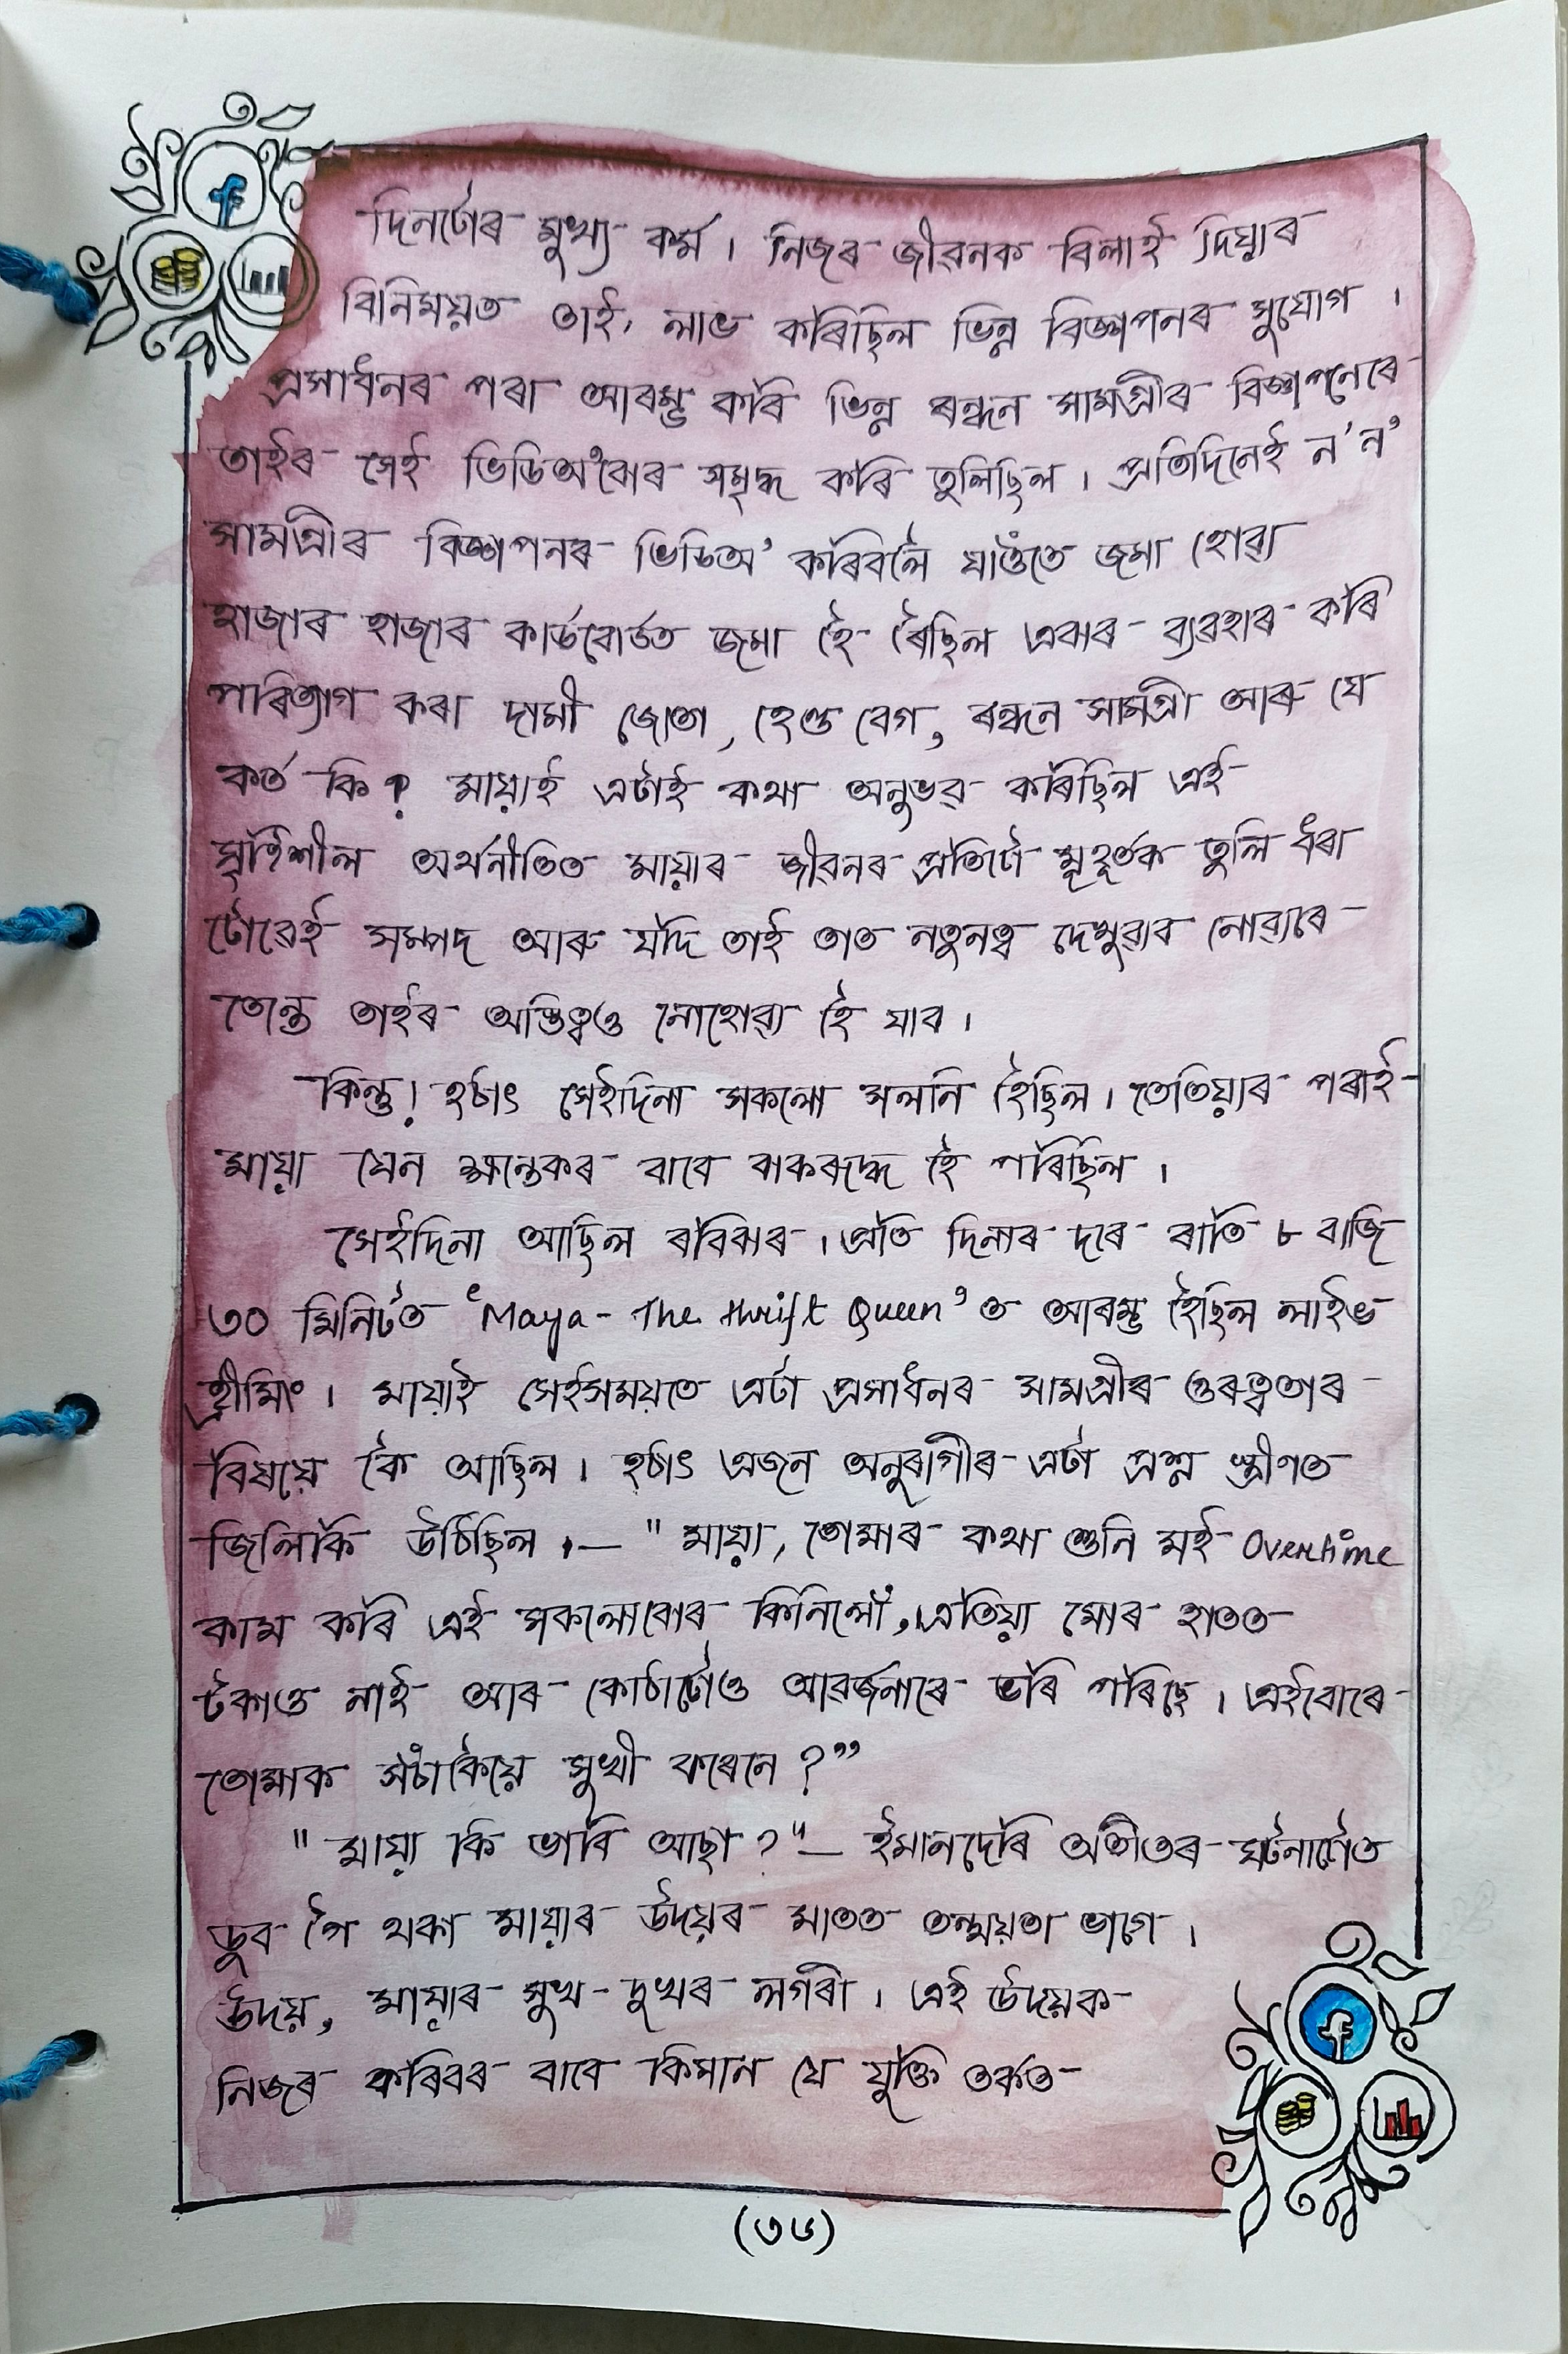 দিনটোৰ মুখ্য কৰ্ম। নিজৰ জীৱনক বিলাই দিয়াৰ
বিনিময়ত তাই, লাভ কৰিছিল ভিন্ন বিজ্ঞাপনৰ সুযোগ।
প্ৰসাধনৰ পৰা আৰম্ভ কৰি ভিন্ন ৰন্ধন সামগ্ৰীৰ বিজ্ঞাপনেৰে
তাইৰ সেই ভিডিঅ'বোৰ সমৃদ্ধ কৰি তুলিছিল। প্ৰতিদিনেই ন'ন'
সামগ্ৰীৰ বিজ্ঞাপনৰ ভিডিঅ' কৰিবলৈ যাওঁতে জমা হোৱা
হাজাৰ হাজাৰ কাৰ্ডবোৰ্ডত জমা হৈ ৰৈছিল এবাৰ ব্যৱহাৰ কৰি
পৰিত্যাগ কৰা দামী জোতা, হেণ্ড বেগ, ৰন্ধন সামগ্ৰী আৰু যে
কত কি? মায়াই এটাই কথা অনুভৱ কৰিছিল এই
সৃষ্টিশীল অৰ্থনীতিত মায়াৰ জীৱনৰ প্ৰতিটো মুহূৰ্তক তুলি ধৰা
টোৱেই সম্পদ আৰু যদি তাই তাত নতুনত্ব দেখুৱাব নোৱাৰে
তেন্তে তাইৰ অস্তিত্বও নোহোৱা হৈ যাব।
কিন্তু! হঠাৎ সেইদিনা সকলো সলনি হৈছিল। তেতিয়াৰ পৰাই
মায়া যেন ক্ষন্তেকৰ বাবে বাকৰুদ্ধ হৈ পৰিছিল।
সেইদিনা আছিল ৰবিবাৰ। প্ৰতি দিনাৰ দৰে ৰাতি ৮ বাজি
৩০ মিনিটত ‘Maya - The thrift Queen’ ত আৰম্ভ হৈছিল লাইভ
ষ্ট্ৰীমিং। মায়াই সেইসময়তে এটা প্ৰসাধনৰ সামগ্ৰীৰ গুৰুত্বতাৰ
বিষয়ে কৈ আছিল। হঠাৎ এজন অনুৰাগীৰ এটা প্ৰশ্ন স্ক্ৰীণত
জিলিকি উঠিছিল।— "মায়া, তোমাৰ কথা শুনি মই Overtime
কাম কৰি এই সকলোবোৰ কিনিলোঁ, এতিয়া মোৰ হাতত
টকাও নাই আৰু কোঠাটোও আৱৰ্জনাৰে ভৰি পৰিছে। এইবোৰে
তোমাক সঁচাকৈয়ে সুখী কৰেনে?”
"মায়া কি ভাবি আছা?"— ইমানদেৰি অতীতৰ ঘটনাটোত
ডুব গৈ থকা মায়াৰ উদয়ৰ মাতত তন্ময়তা ভাগে।
উদয়, মায়াৰ সুখ-দুখৰ লগৰী। এই উদয়ক
নিজৰ কৰিবৰ বাবে কিমান যে যুক্তি তৰ্কত
(৩৬)